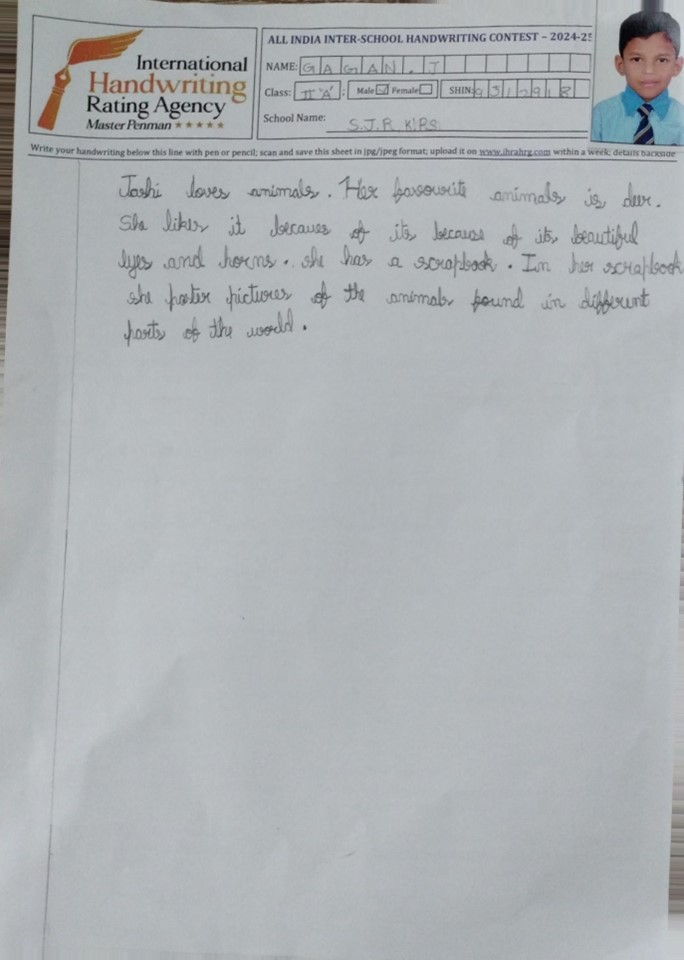 International
Handwriting
Rating Agency
Master Penman ★★★★★
ALL INDIA INTER-SCHOOL HANDWRITING CONTEST – 2024-25
NAME: GAGAN.J
Class: II 'A' : Male ☑ Female ☐ SHIN: 9312918
School Name: S.J.R. K.P.S
Write your handwriting below this line with pen or pencil; scan and save this sheet in jpg/jpeg format; upload it on www.ihrahrg.com within a week; details backside
Joshi loves animals. Her favourite animals is deer.
She likes it becaues of its because of its beautiful
eyes and horns. she has a scrapbook. In her scrapbook
she paster pictures of the animals found in different
parts of the world.